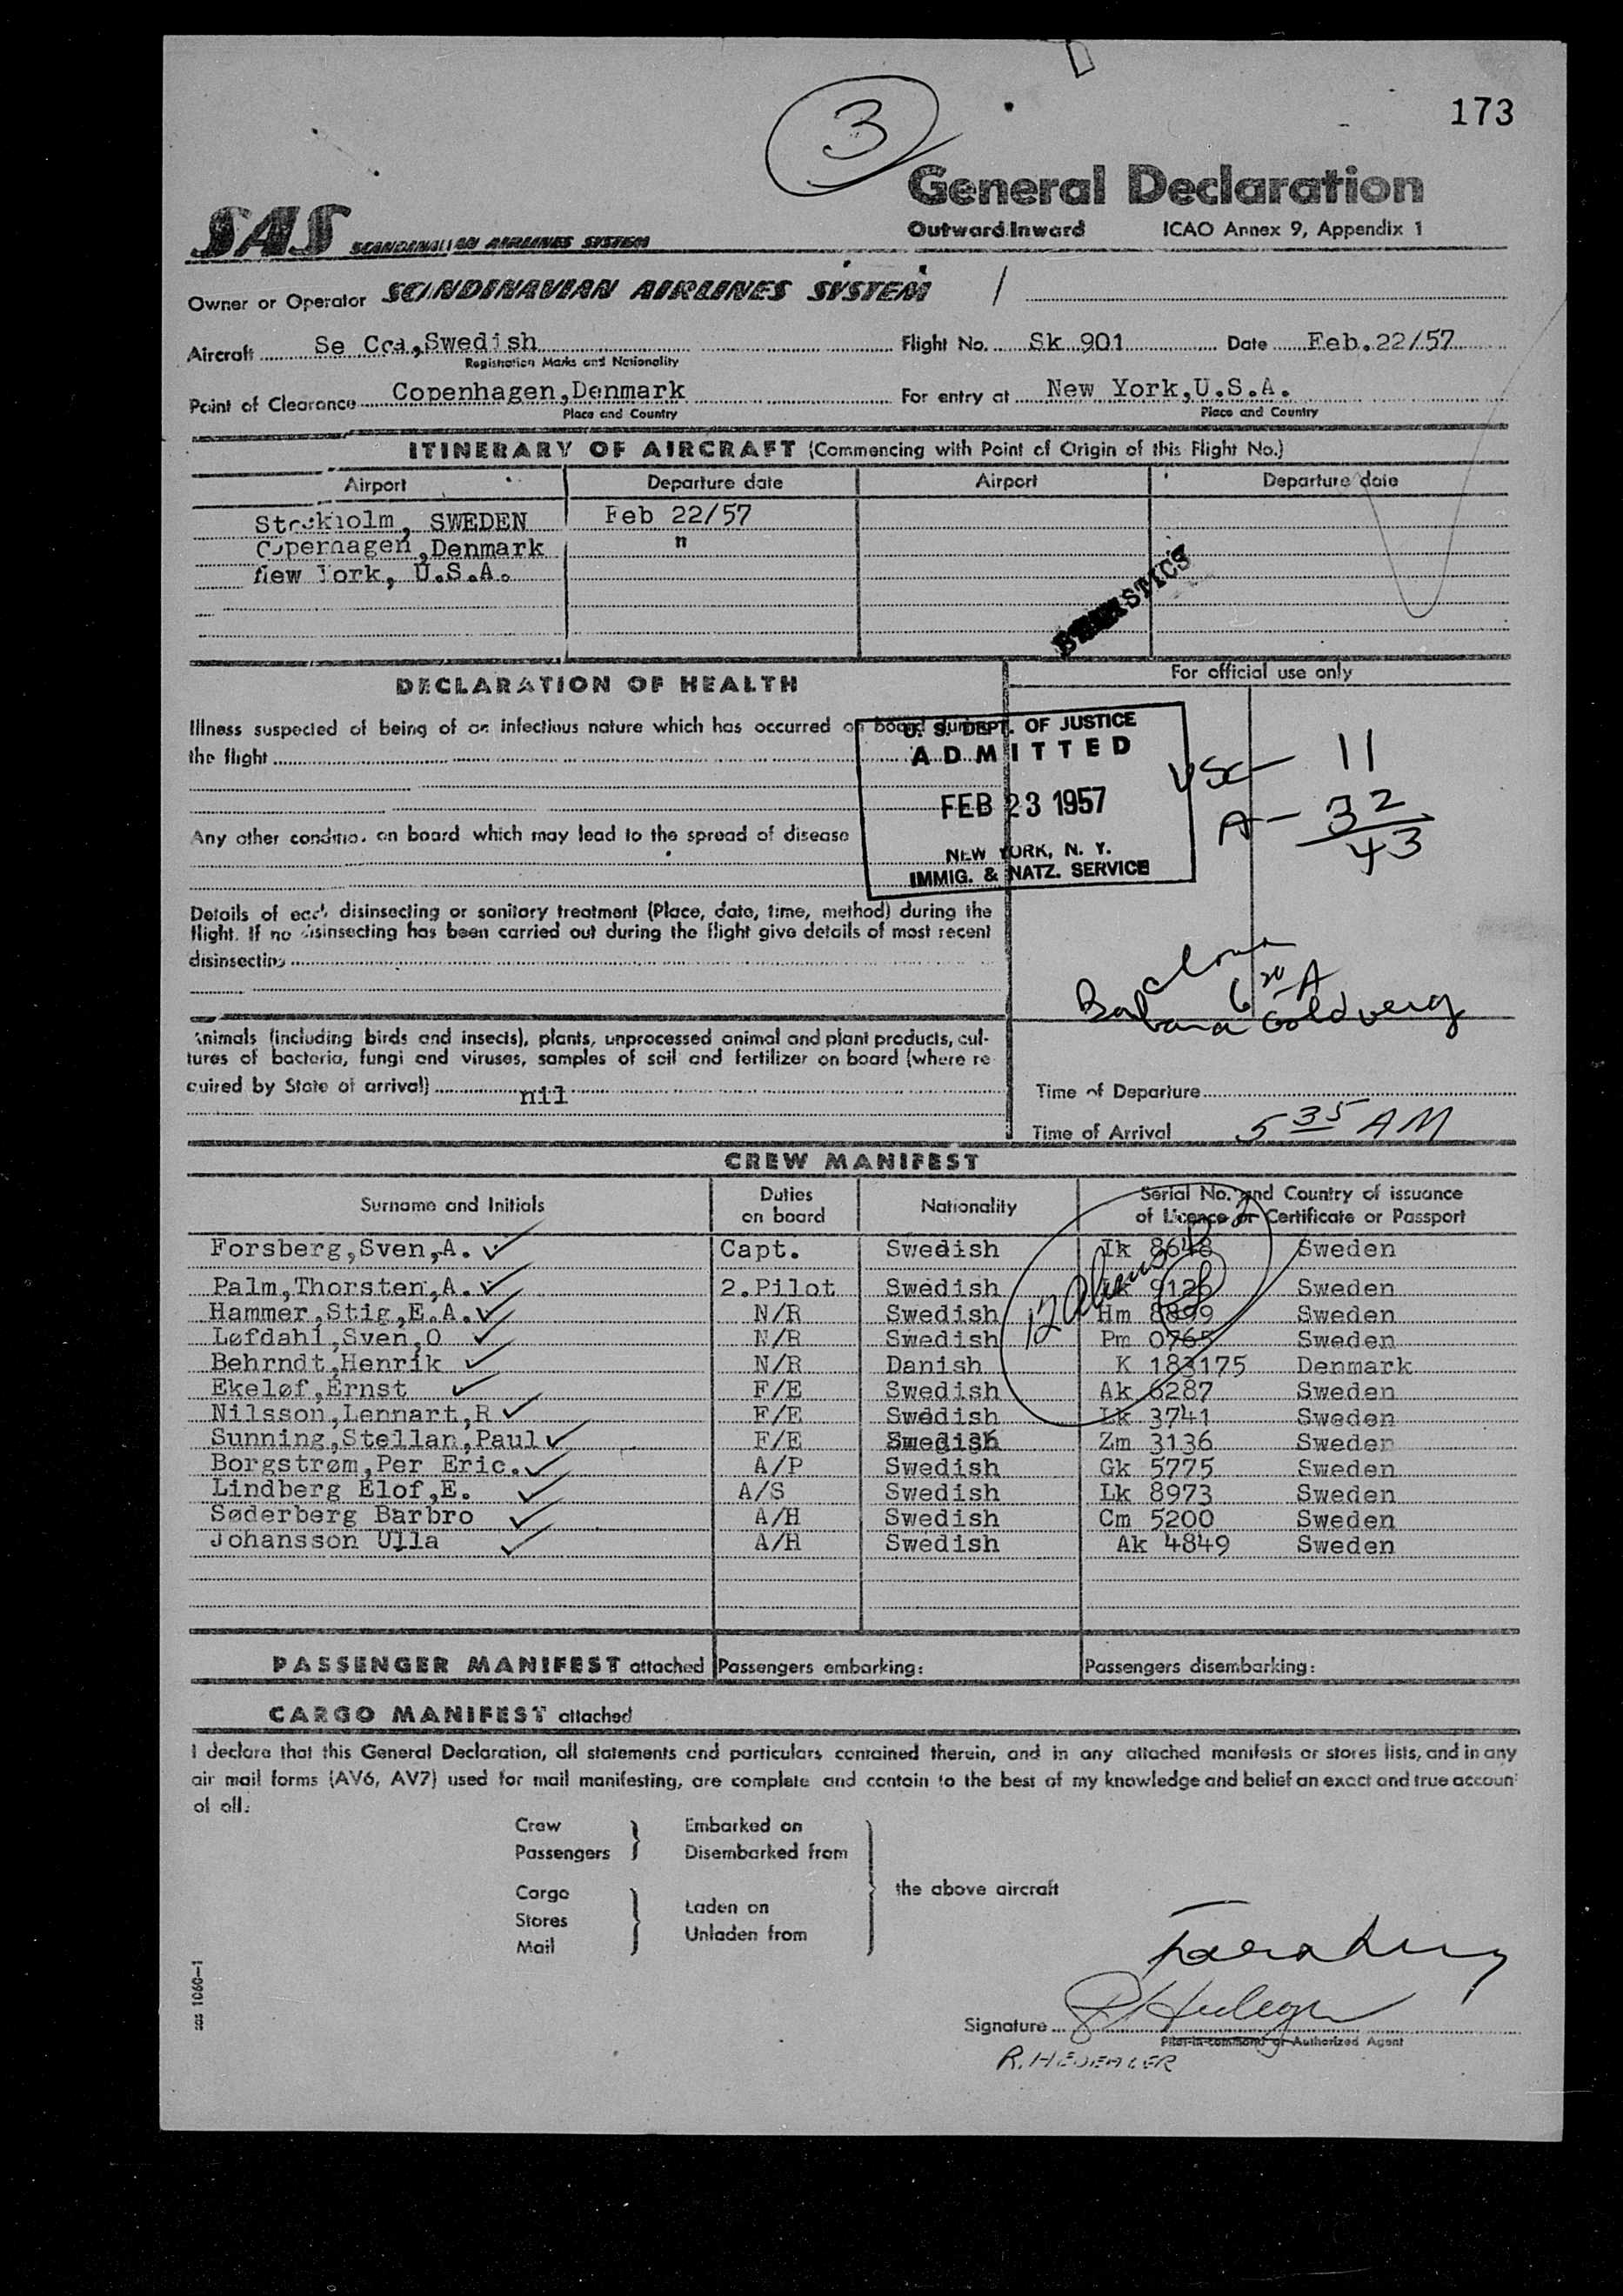 3
173
General Declaration
Outward/Inward ICAO Annex 9, Appendix 1
SAS SCANDINAVIAN AIRLINES SYSTEM
Owner or Operator SCANDINAVIAN AIRLINES SYSTEM /
Aircraft Se Cca,Swedish Flight No. Sk 901 Date Feb.22/57
Registration Marks and Nationality
Point of Clearance Copenhagen,Denmark For entry at New York,U.S.A.
Place and Country Place and Country
ITINERARY OF AIRCRAFT (Commencing with Point of Origin of this Flight No.)
Airport Departure date Airport Departure date
Stockholm, SWEDEN Feb 22/57
Copenhagen,Denmark "
New York, U.S.A.
DECLARATION OF HEALTH For official use only
Illness suspected of being of an infectious nature which has occurred on board during
the flight
U. S. DEPT. OF JUSTICE
ADMITTED
FEB 23 1957
NEW YORK, N. Y.
IMMIG. & NATZ. SERVICE
USC - 11
A - 32
43
Any other condition on board which may lead to the spread of disease
Details of each disinsecting or sanitary treatment (Place, date, time, method) during the
flight. If no disinsecting has been carried out during the flight give details of most recent
disinsecting
6 20 A
Barbara Goldberg
Animals (including birds and insects), plants, unprocessed animal and plant products, cul-
tures of bacteria, fungi and viruses, samples of soil and fertilizer on board (where re-
quired by State of arrival) nil
Time of Departure
Time of Arrival 5 35 AM
CREW MANIFEST
Surname and Initials Duties on board Nationality Serial No. and Country of issuance of Licence or Certificate or Passport
12 Aliens
Forsberg,Sven,A. Capt. Swedish Ik 8648 Sweden
Palm,Thorsten,A. 2.Pilot Swedish 9126 Sweden
Hammer,Stig,E.A. N/R Swedish Hm 8899 Sweden
Løfdahl,Sven,O N/R Swedish Pm 0765 Sweden
Behrndt,Henrik N/R Danish K 183175 Denmark
Ekeløf,Ernst F/E Swedish Ak 6287 Sweden
Nilsson,Lennart,R F/E Swedish Lk 3741 Sweden
Sunning,Stellan,Paul F/E Swedish Zm 3136 Sweden
Borgstrøm,Per Eric. A/P Swedish Gk 5775 Sweden
Lindberg Elof,E. A/S Swedish Lk 8973 Sweden
Søderberg Barbro A/H Swedish Cm 5200 Sweden
Johansson Ulla A/H Swedish Ak 4849 Sweden
PASSENGER MANIFEST attached Passengers embarking: Passengers disembarking:
CARGO MANIFEST attached
I declare that this General Declaration, all statements and particulars contained therein, and in any attached manifests or stores lists, and in any
air mail forms (AV6, AV7) used for mail manifesting, are complete and contain to the best of my knowledge and belief an exact and true account
of all:
Crew Embarked on
Passengers Disembarked from
Cargo the above aircraft
Stores Laden on
Mail Unladen from
sas 1060-1
Signature
Pilot-in-command or Authorized Agent